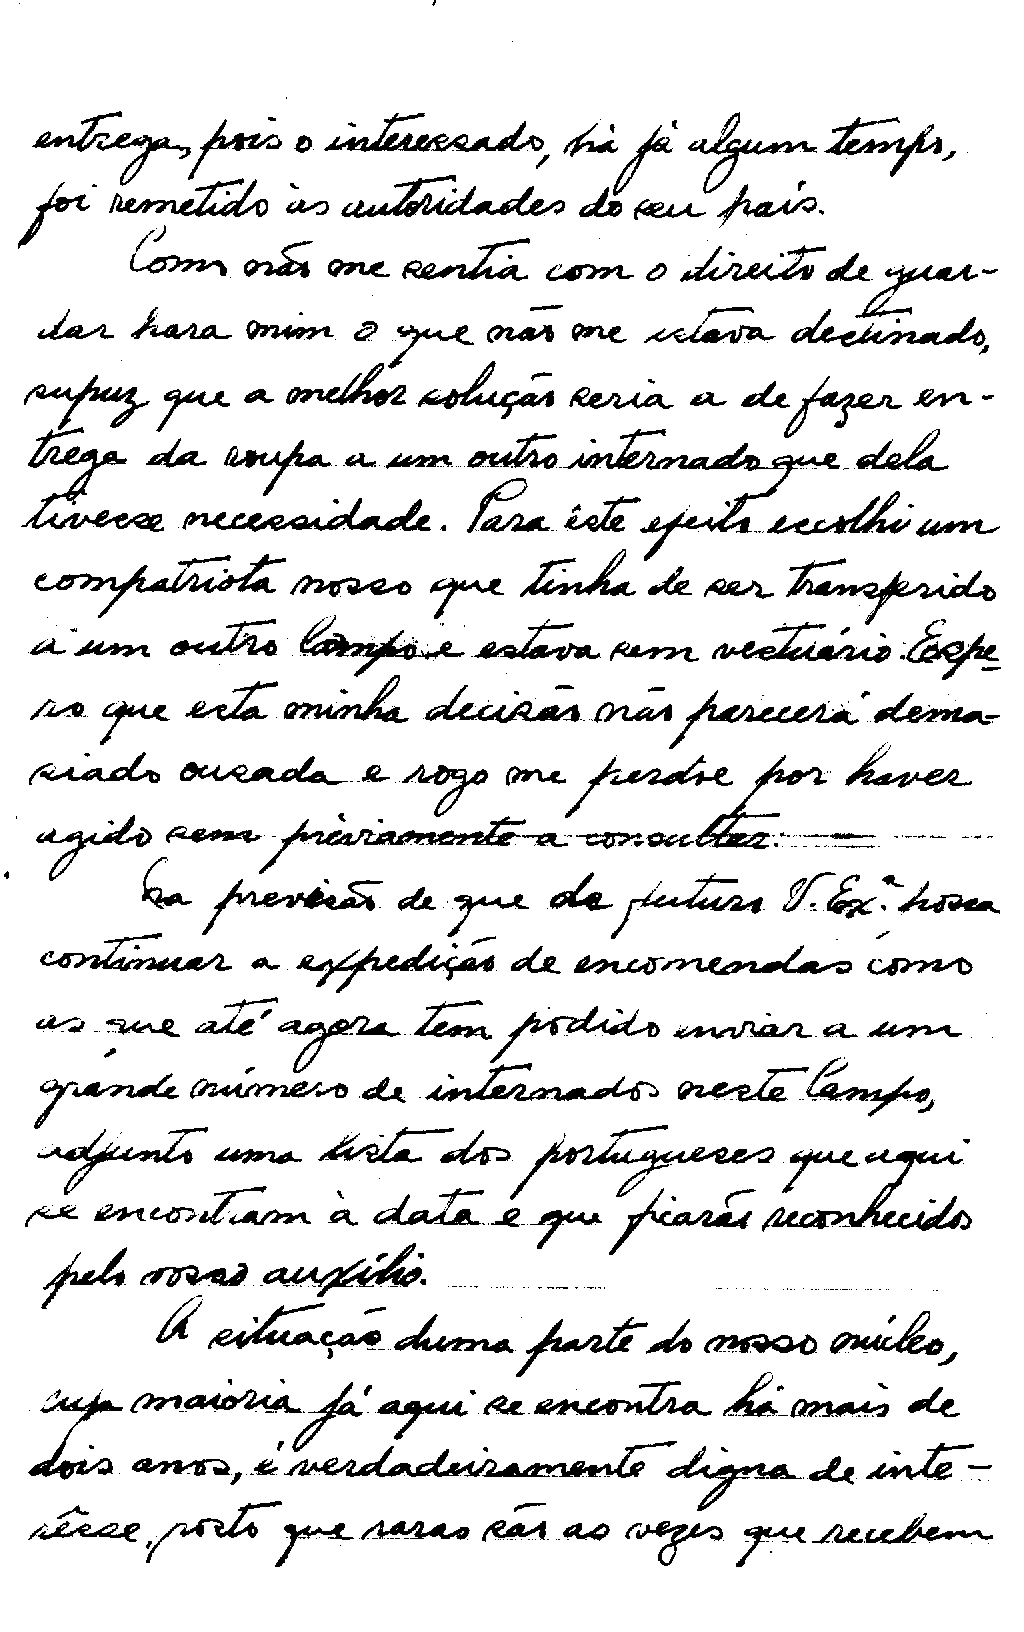 entrega, pois o interessado, há já algum tempo,
foi remetido às autoridades do seu país.
Como não me sentia com o direito de guar-
dar para mim o que não me estava destinado,
supuz que a melhor solução seria a de fazer en-
trega da roupa a um outro internado que dela
tivesse necessidade. Para êste efeito escolhi um
compatriota nosso que tinha de ser transferido
a um outro Campo e estava sem vestuário. Espe-
ro que esta minha decisão não parecerá dema-
siado ousada e rogo me perdoe por haver
agido sem préviamente a consultar.
Na previsão de que de futuro V. Exª. possa
continuar a expedição de encomendas como
as que até agora tem podido enviar a um
grande número de internados neste Campo,
adjunto uma lista dos portugueses que aqui
se encontram à data e que ficarão reconhecidos
pelo vosso auxílio.
A situação duma parte do nosso núcleo,
cuja maioria já aqui se encontra há mais de
dois anos, é verdadeiramente digna de inte-
rêsse, posto que raras são as vezes que recebem